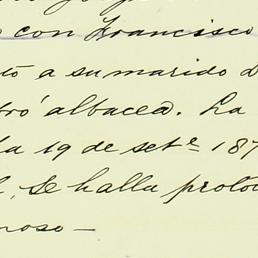 con Francisco
tó a su marido D
tró albacea. La
la 19 de set.e 187
l, se halla proto
noso —